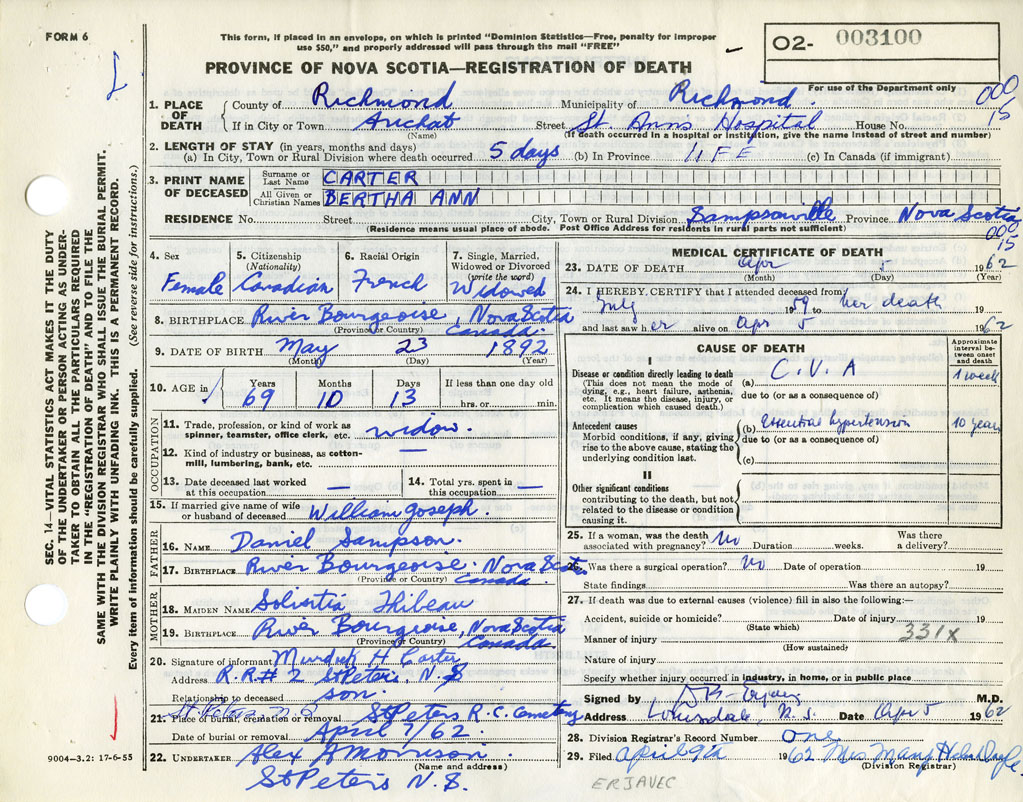 FORM 6
This form, if placed in an envelope, on which is printed "Dominion Statistics—Free, penalty for improper
use $50," and properly addressed will pass through the mail "FREE"
02- 003100
For use of the Department only
PROVINCE OF NOVA SCOTIA—REGISTRATION OF DEATH
000
15
1. PLACE OF DEATH County of Richmond Municipality of Richmond
If in City or Town Arichat Street St. Anns Hospital House No.
(Name) (If death occurred in hospital or institution, give the name instead of street and number)
2. LENGTH OF STAY (in years, months and days)
(a) In City, Town or Rural Division where death occurred 5 days (b) In Province LIFE (c) In Canada (if immigrant)
3. PRINT NAME OF DECEASED Surname or Last Name CARTER
All Given or Christian Names BERTHA ANN
RESIDENCE No. Street City, Town or Rural Division Sampsonville Province Nova Scotia
(Residence means usual place of abode. Post Office Address for residents in rural parts not sufficient)
000
15
4. Sex Female
5. Citizenship (Nationality) Canadian
6. Racial Origin French
7. Single, Married, Widowed or Divorced (write the word) Widowed
8. BIRTHPLACE River Bourgeoise, Nova Scotia
(Province or Country) Canada.
9. DATE OF BIRTH May 23 1892
(Month) (Day) (Year)
10. AGE in Years 69 Months 10 Days 13 If less than one day old hrs. or min.
OCCUPATION
11. Trade, profession, or kind of work as spinner, teamster, office clerk, etc. widow.
12. Kind of industry or business, as cotton-mill, lumbering, bank, etc. —
13. Date deceased last worked at this occupation — 14. Total yrs. spent in this occupation —
15. If married give name of wife or husband of deceased William Joseph.
FATHER
16. NAME Daniel Sampson.
17. BIRTHPLACE River Bourgeoise. Nova Scotia
(Province or Country) Canada
MOTHER
18. MAIDEN NAME Thibeau
19. BIRTHPLACE River Bourgeoise, Nova Scotia
(Province or Country) Canada.
20. Signature of informant Murdick H Carter
Address R.R.# 2 St Peters, N.S
Relationship to deceased son.
St. Peters N.S
21. Place of burial, cremation or removal St Peters R.C. Cemetery
Date of burial or removal April 7/62.
22. UNDERTAKER Alex A Morrison.
(Name and address)
St Peters N.S.
MEDICAL CERTIFICATE OF DEATH
23. DATE OF DEATH Apr 5 1962
(Month) (Day) (Year)
24. I HEREBY CERTIFY that I attended deceased from
July 1959 to her death 19
and last saw her alive on Apr 5 1962
CAUSE OF DEATH
Approximate interval between onset and death
I
Disease or condition directly leading to death
(This does not mean the mode of dying, e.g., heart failure, asthenia, etc. It means the disease, injury, or complication which caused death.)
(a) C.V.A 1 week
due to (or as a consequence of)
Antecedent causes
Morbid conditions, if any, giving rise to the above cause, stating the underlying condition last.
(b) Essential hypertension 10 years
due to (or as a consequence of)
(c)
II
Other significant conditions
contributing to the death, but not related to the disease or condition causing it.
25. If a woman, was the death associated with pregnancy? No Duration weeks. Was there a delivery?
26. Was there a surgical operation? No Date of operation 19
State findings Was there an autopsy?
27. If death was due to external causes (violence) fill in also the following:—
Accident, suicide or homicide? Date of injury 19
(State which)
331x
Manner of injury
(How sustained)
Nature of injury
Specify whether injury occurred in industry, in home, or in public place
Signed by M.D.
Address N.S. Date Apr 5 1962
28. Division Registrar's Record Number one
29. Filed April 9th 1962 Mrs Mary Helen Doyle
(Division Registrar)
ERJAVEC
SEC. 14—VITAL STATISTICS ACT MAKES IT THE DUTY
OF THE UNDERTAKER OR PERSON ACTING AS UNDER-
TAKER TO OBTAIN ALL THE PARTICULARS REQUIRED
IN THE "REGISTRATION OF DEATH" AND TO FILE THE
SAME WITH THE DIVISION REGISTRAR WHO SHALL ISSUE THE BURIAL PERMIT.
WRITE PLAINLY WITH UNFADING INK. THIS IS A PERMANENT RECORD.
Every item of information should be carefully supplied. (See reverse side for instructions.)
9004—3.2: 17-6-55